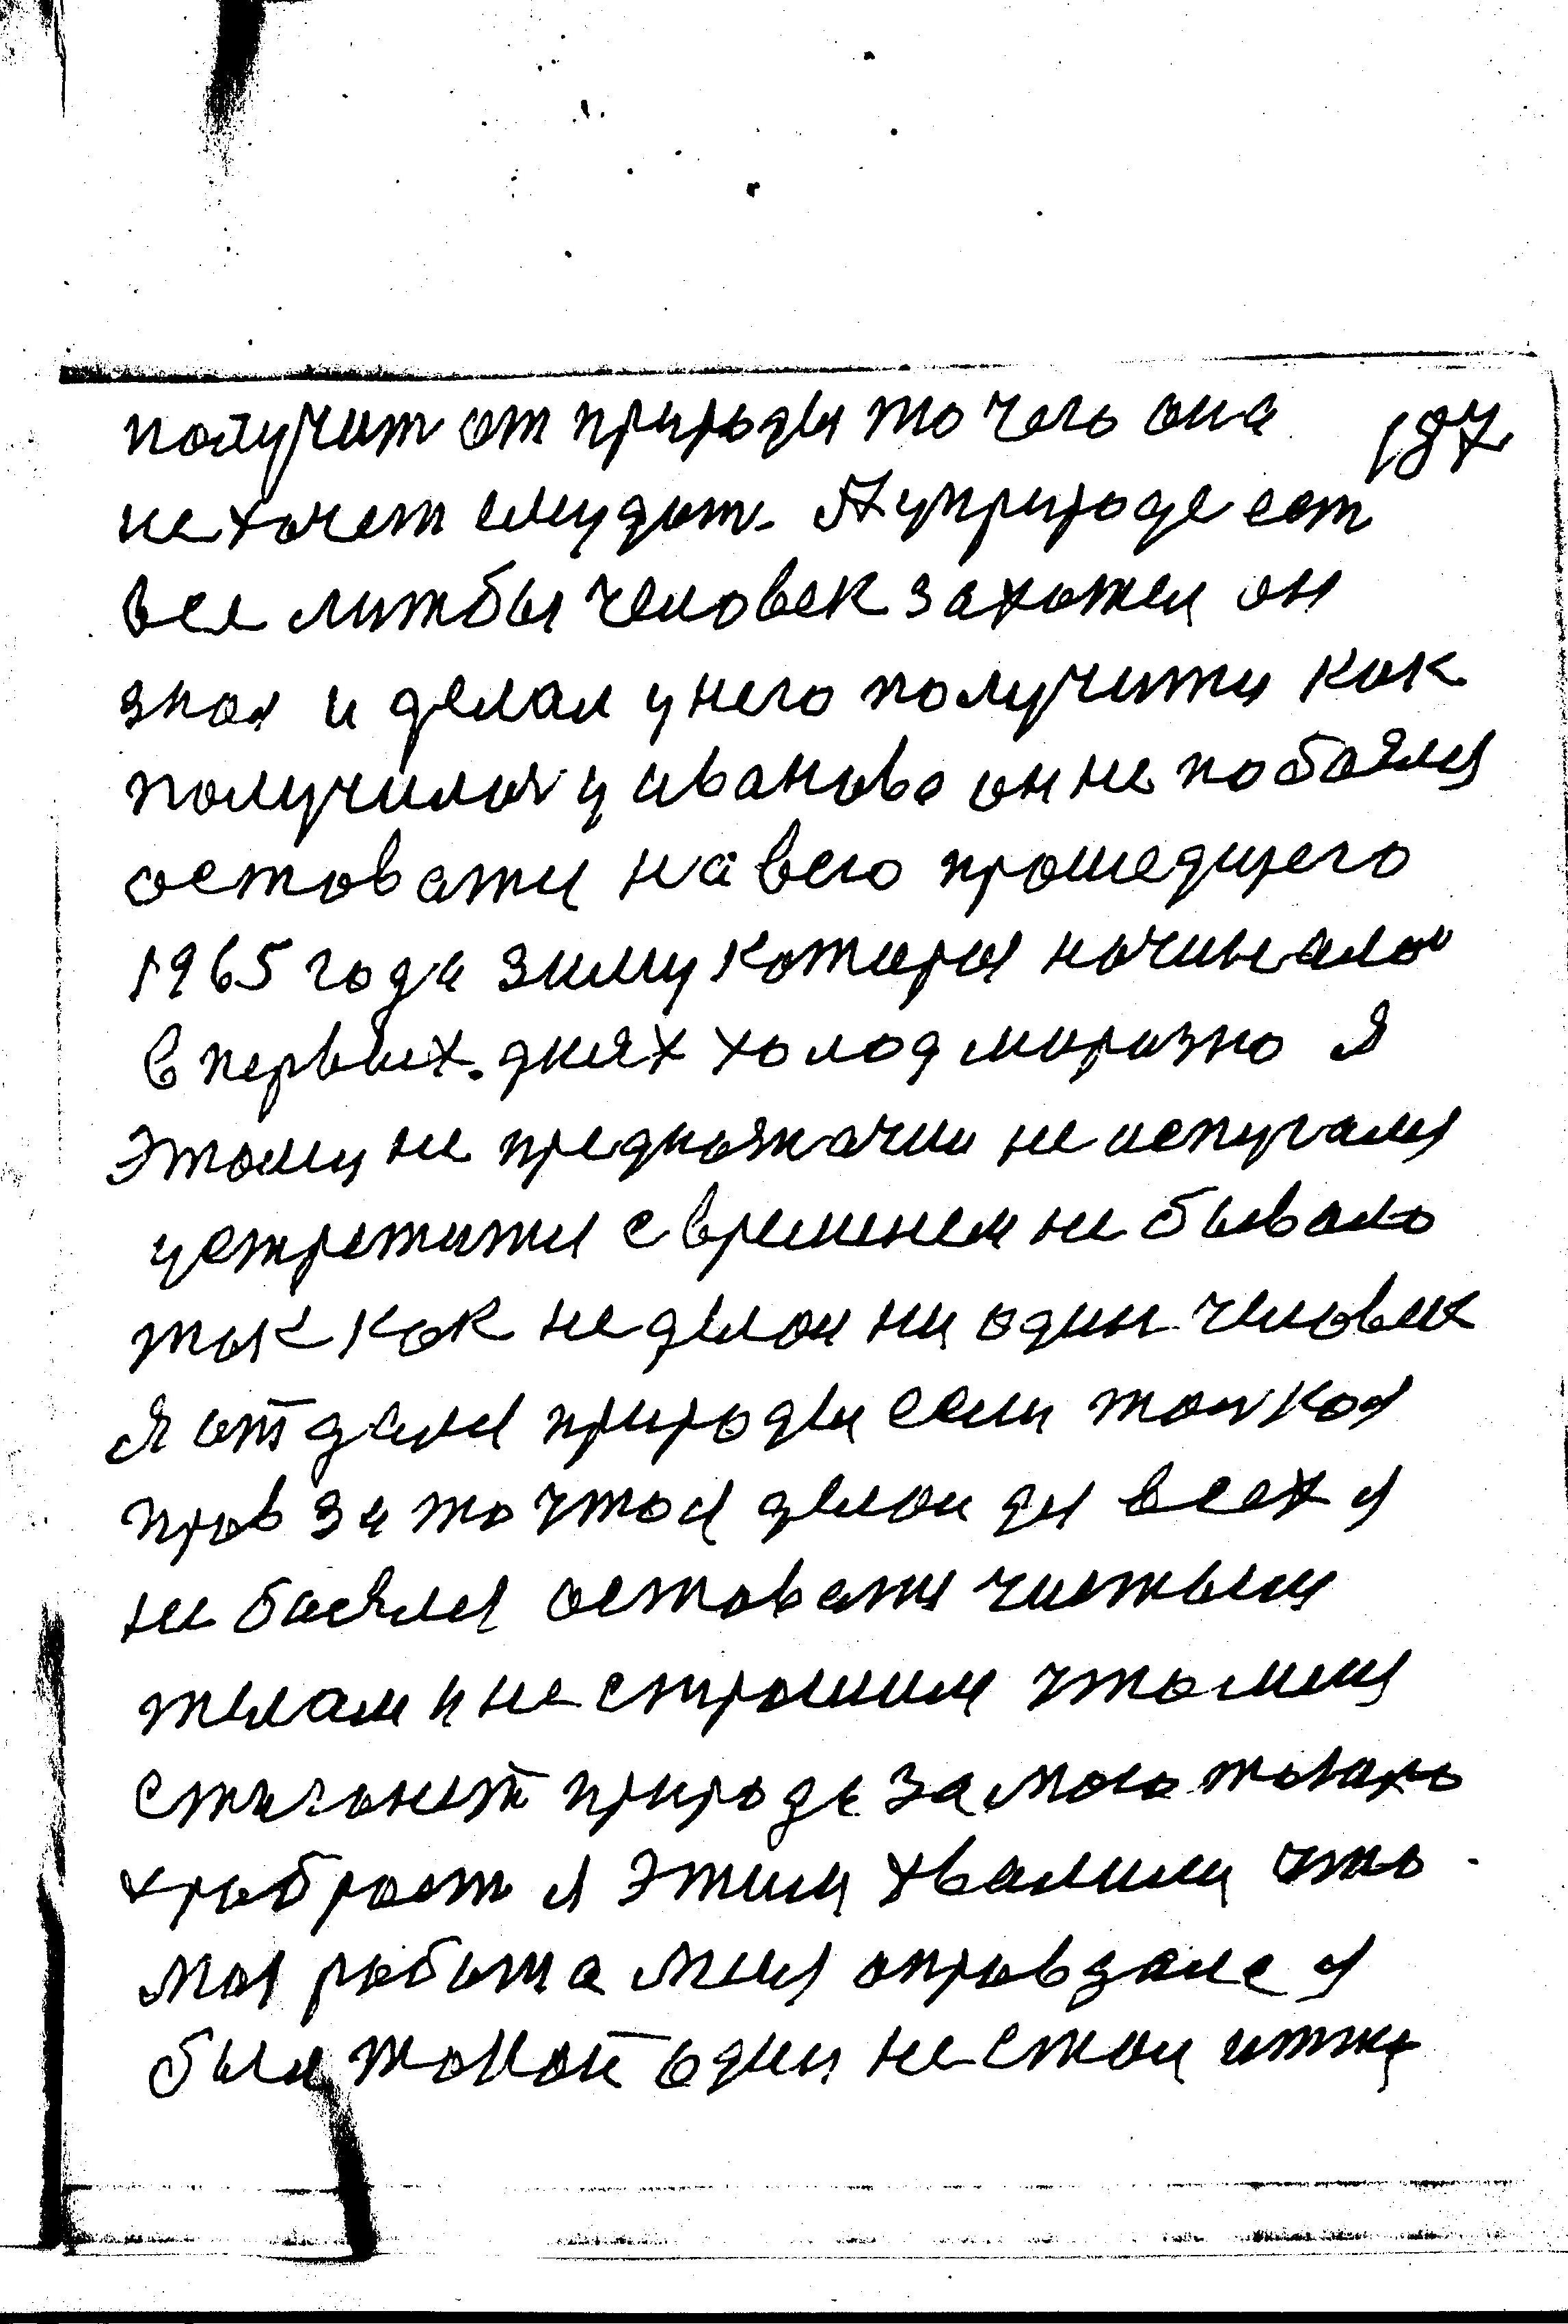 получит от природы то чого она 187
не хочет ему дат. А у природе ест
все лижбы человек захотел он
знал и делал у него получити как
получилос у иванова он не побоялся
оставатся на всю прошедщего
1965 года зиму которая начиналос
в первых днях холод маразно я
этому не предназначил не испугался
устретится с временем не бывало
так как не делал ни один человек
я отдался природы если толкоя
прав за то что я делал для всех я
не боялся оставатся чистым
телом и не страшим что миня
стиганет природа за мою такаю
храброст я этим хвалилися что
моя работа миня оправдала я
был такой один не стал итти